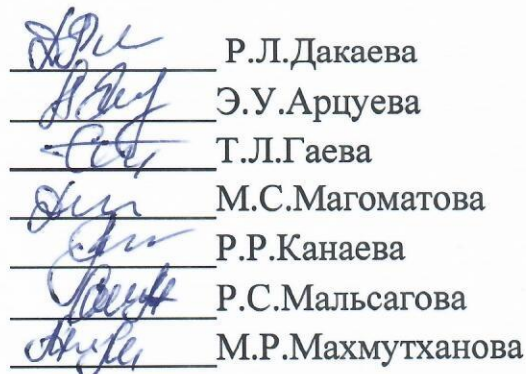 Р.Л.Дакаева
Э.У.Арцуева
Т.Л.Гаева
М.С.Магоматова
Р.Р.Канаева
Р.С.Мальсагова
М.Р.Махмутханова